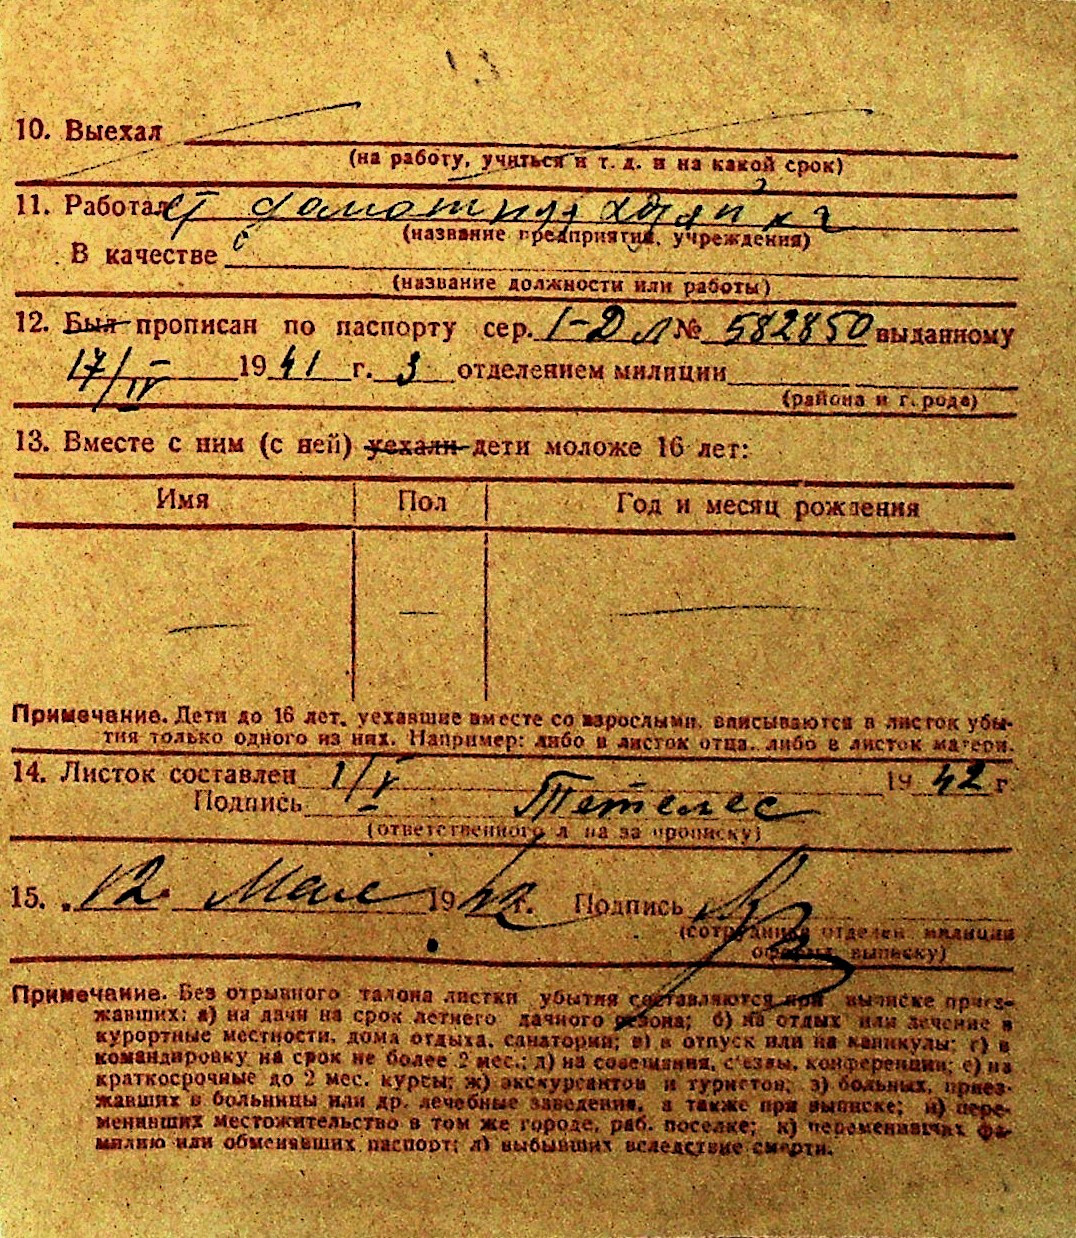 10. Выехал
(на работу, учиться и т. д. и на какой срок)
11. Работал
(название предприятия, учреждения)
В качестве
(название должности или работы)
12. Был прописан по паспорту сер. 1-Д Л № 582850 выданному
17/IV 1941 г. 3 отделением милиции
(района и города)
13. Вместе с ним (с ней) уехали дети моложе 16 лет:
Имя Пол Год и месяц рождения
Примечание. Дети до 16 лет, уехавшие вместе со взрослыми, вписываются в листок убы-
тия только одного из них. Например: либо в листок отца, либо в листок матери.
14. Листок составлен 1/V 1942 г
Подпись
(ответственного лица за прописку)
15. 12 Мая 1942 г. Подпись
(сотрудника отделен. милиции
оформ. выписку)
Примечание. Без отрывного талона листки убытия составляются при выписке приез-
жавших: а) на дачи на срок летнего дачного сезона; б) на отдых или лечение в
курортные местности, дома отдыха, санатории; в) в отпуск или на каникулы; г) в
командировку на срок не более 2 мес.; д) на совещания, съезды, конференции; е) на
краткосрочные до 2 мес. курсы; ж) экскурсантов и туристов; з) больных, приез-
жавших в больницы или др. лечебные заведения, а также при выписке; и) пере-
менивших местожительство в том же городе, раб. поселке; к) переменивших фа-
милию или обменявших паспорт; л) выбывших вследствие смерти.